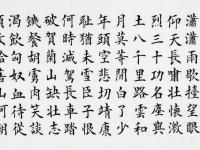 瀟瀟雨歇擡望眼
仰天長嘯壯懷激
烈三十功名塵與
土八千里路雲和
月莫等閒白了少
年頭空悲切靖康
恥猶未雪臣子恨
何時滅駕長車踏
破賀蘭山缺壯志
饑餐胡虜肉笑談
渴飲匈奴血待從